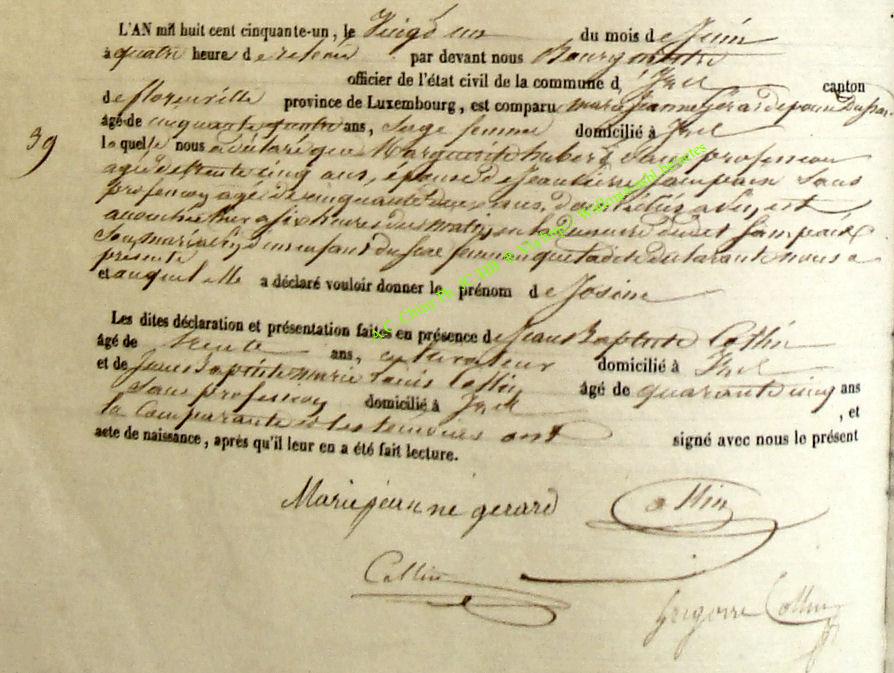 L'AN mil huit cent cinquante-un, le Vingt un du mois de Juin
à quatre heure de relevée par devant nous Bourgmestre
officier de l'état civil de la commune d'Izel canton
de florenville province de Luxembourg, est comparu marie Jeanne Gérard épouse
39
âgé de cinquante quatre ans, Sage femme domicilié à Izel
laquelle nous a déclaré que Marguerite hubert sans profession
agée de trente cinq ans, épouse de Jean Pierre sans
profession agé de cinquante ans, domiciliés à Izel, est
accouchée à six heures du matin, en la demeure dudit
son mari d'un enfant du sexe féminin que ladite déclarante nous a
présenté
et auquel elle a déclaré vouloir donner le prénom de Josine
Les dites déclaration et présentation faites en présence de Jean Baptiste Collin
âgé de trente ans, cultivateur domicilié à Izel
et de Jean Baptiste marie Louis Collin âgé de quarante cinq ans
sans profession domicilié à Izel , et
la Comparante et les temoins ont signé avec nous le présent
acte de naissance, après qu'il leur en a été fait lecture.
Mariejeanne gerard Collin
Collin
Grégoire Collin